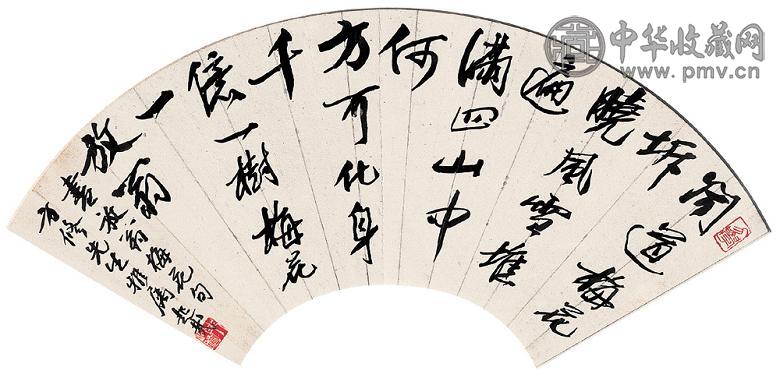 中华收藏网
www.pmv.cn
闻道梅花
坼
曉風雪堆
遍
滿四山中
何
方可化身
千
億一樹梅花
一
放翁
書放翁梅花句
方修先生雅屬